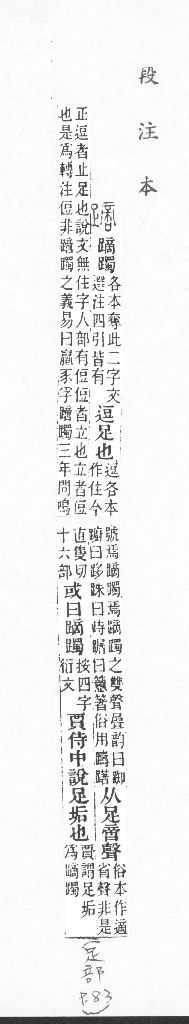 段注本
蹢躅各本奪此二字文選注四引皆有逗足也逗各本作住今
正逗者止足也說文無住字人部有侸侸者立也立者侸
也是為轉注侸非蹢躅之義易曰羸豕孚蹢躅三年問鳴
號焉蹢躅焉蹢躅之雙聲疊韵曰踟
躕曰跢跦曰峙 曰 著俗用躊躇从足啻聲俗本作適省聲非是
直隻切十六部或曰蹢躅按四字衍文賈侍中說足垢也賈謂足垢為蹢躅
(足部 P.83)